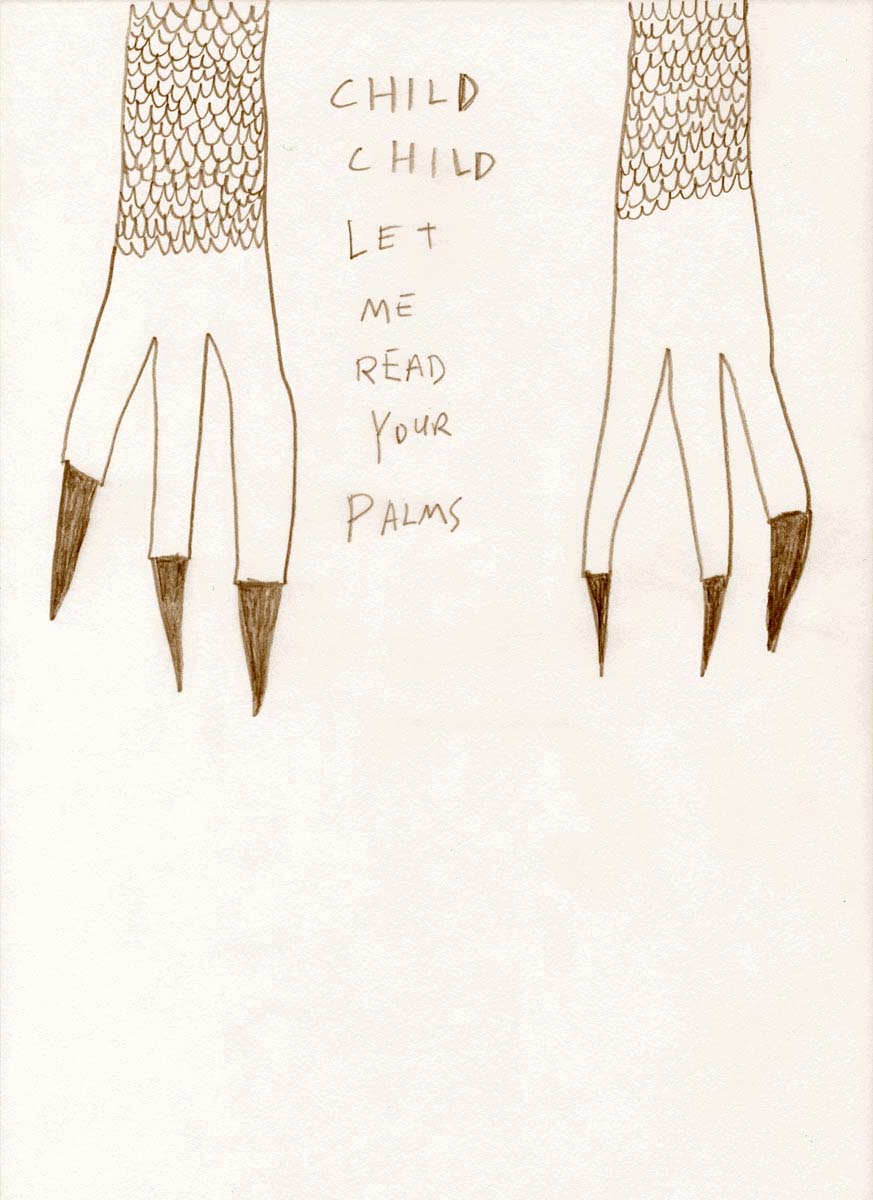 CHILD
CHILD
LET
ME
READ
YOUR
PALMS